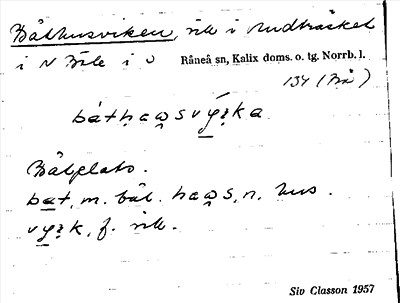 Båthusviken, vik i Rudträsket
i N Bÿle i O Råneå sn, Kalix doms. o. tg. Norrb. l.
134 (Nå)
bátḥaw̯svýṛka
Båtplats.
bat, m. båt. haw̯s, n. hus.
vyṛk, f. vik.
Siv Classon 1957